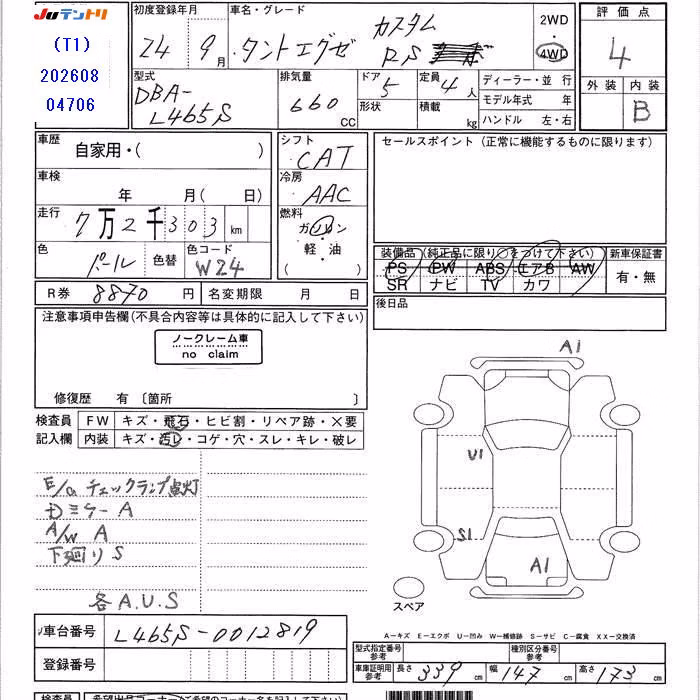 JUテントリ
(T1)
202608
04706
初度登録年月
24 9月
車名・グレード
タントエグゼ カスタム RS
2WD
・
4WD
評価点
4
外装 内装
B
型式
DBA-
L465S
排気量
660
CC
ドア
5
形状
定員
4人
積載
kg
ディーラー・並 行
モデル年式 年
ハンドル 左・右
車歴
自家用・( )
シフト
CAT
セールスポイント (正常に機能するものに限ります)
車検
年 月(日)
冷房
AAC
走行
7万2千303km
燃料
ガソリン
・
軽・油
( )
色
パール
色替
色コード
W24
装備品 (純正品に限り○をつけて下さい)
PS PW ABS エアB AW
SR ナビ TV カワ
新車保証書
有・無
R券 8870円
名変期限 月 日
後日品
注意事項申告欄(不具合内容等は具体的に記入して下さい)
ノークレーム車
no claim
修復歴 有 〔箇所 〕
検査員
記入欄
FW キズ・飛石・ヒビ割・リペア跡・×要
内装 キズ・汚レ・コゲ・穴・スレ・キレ・破レ
E/G チェックランプ点灯
Dミラー A
A/W A
下廻り S
各 A.U.S
A1
U1
S1
A1
スペア
車台番号 L465S-0012819
登録番号
A-キズ E-エクボ U-凹み W-補修跡 S-サビ C-腐食 XX-交換済
型式指定番号
参考
種別区分番号
参考
車庫証明用
参考
長さ 339cm 幅 147cm 高さ 173cm
検査員
希望出品コーナー(ご希望のコーナー名を記入して下さい)